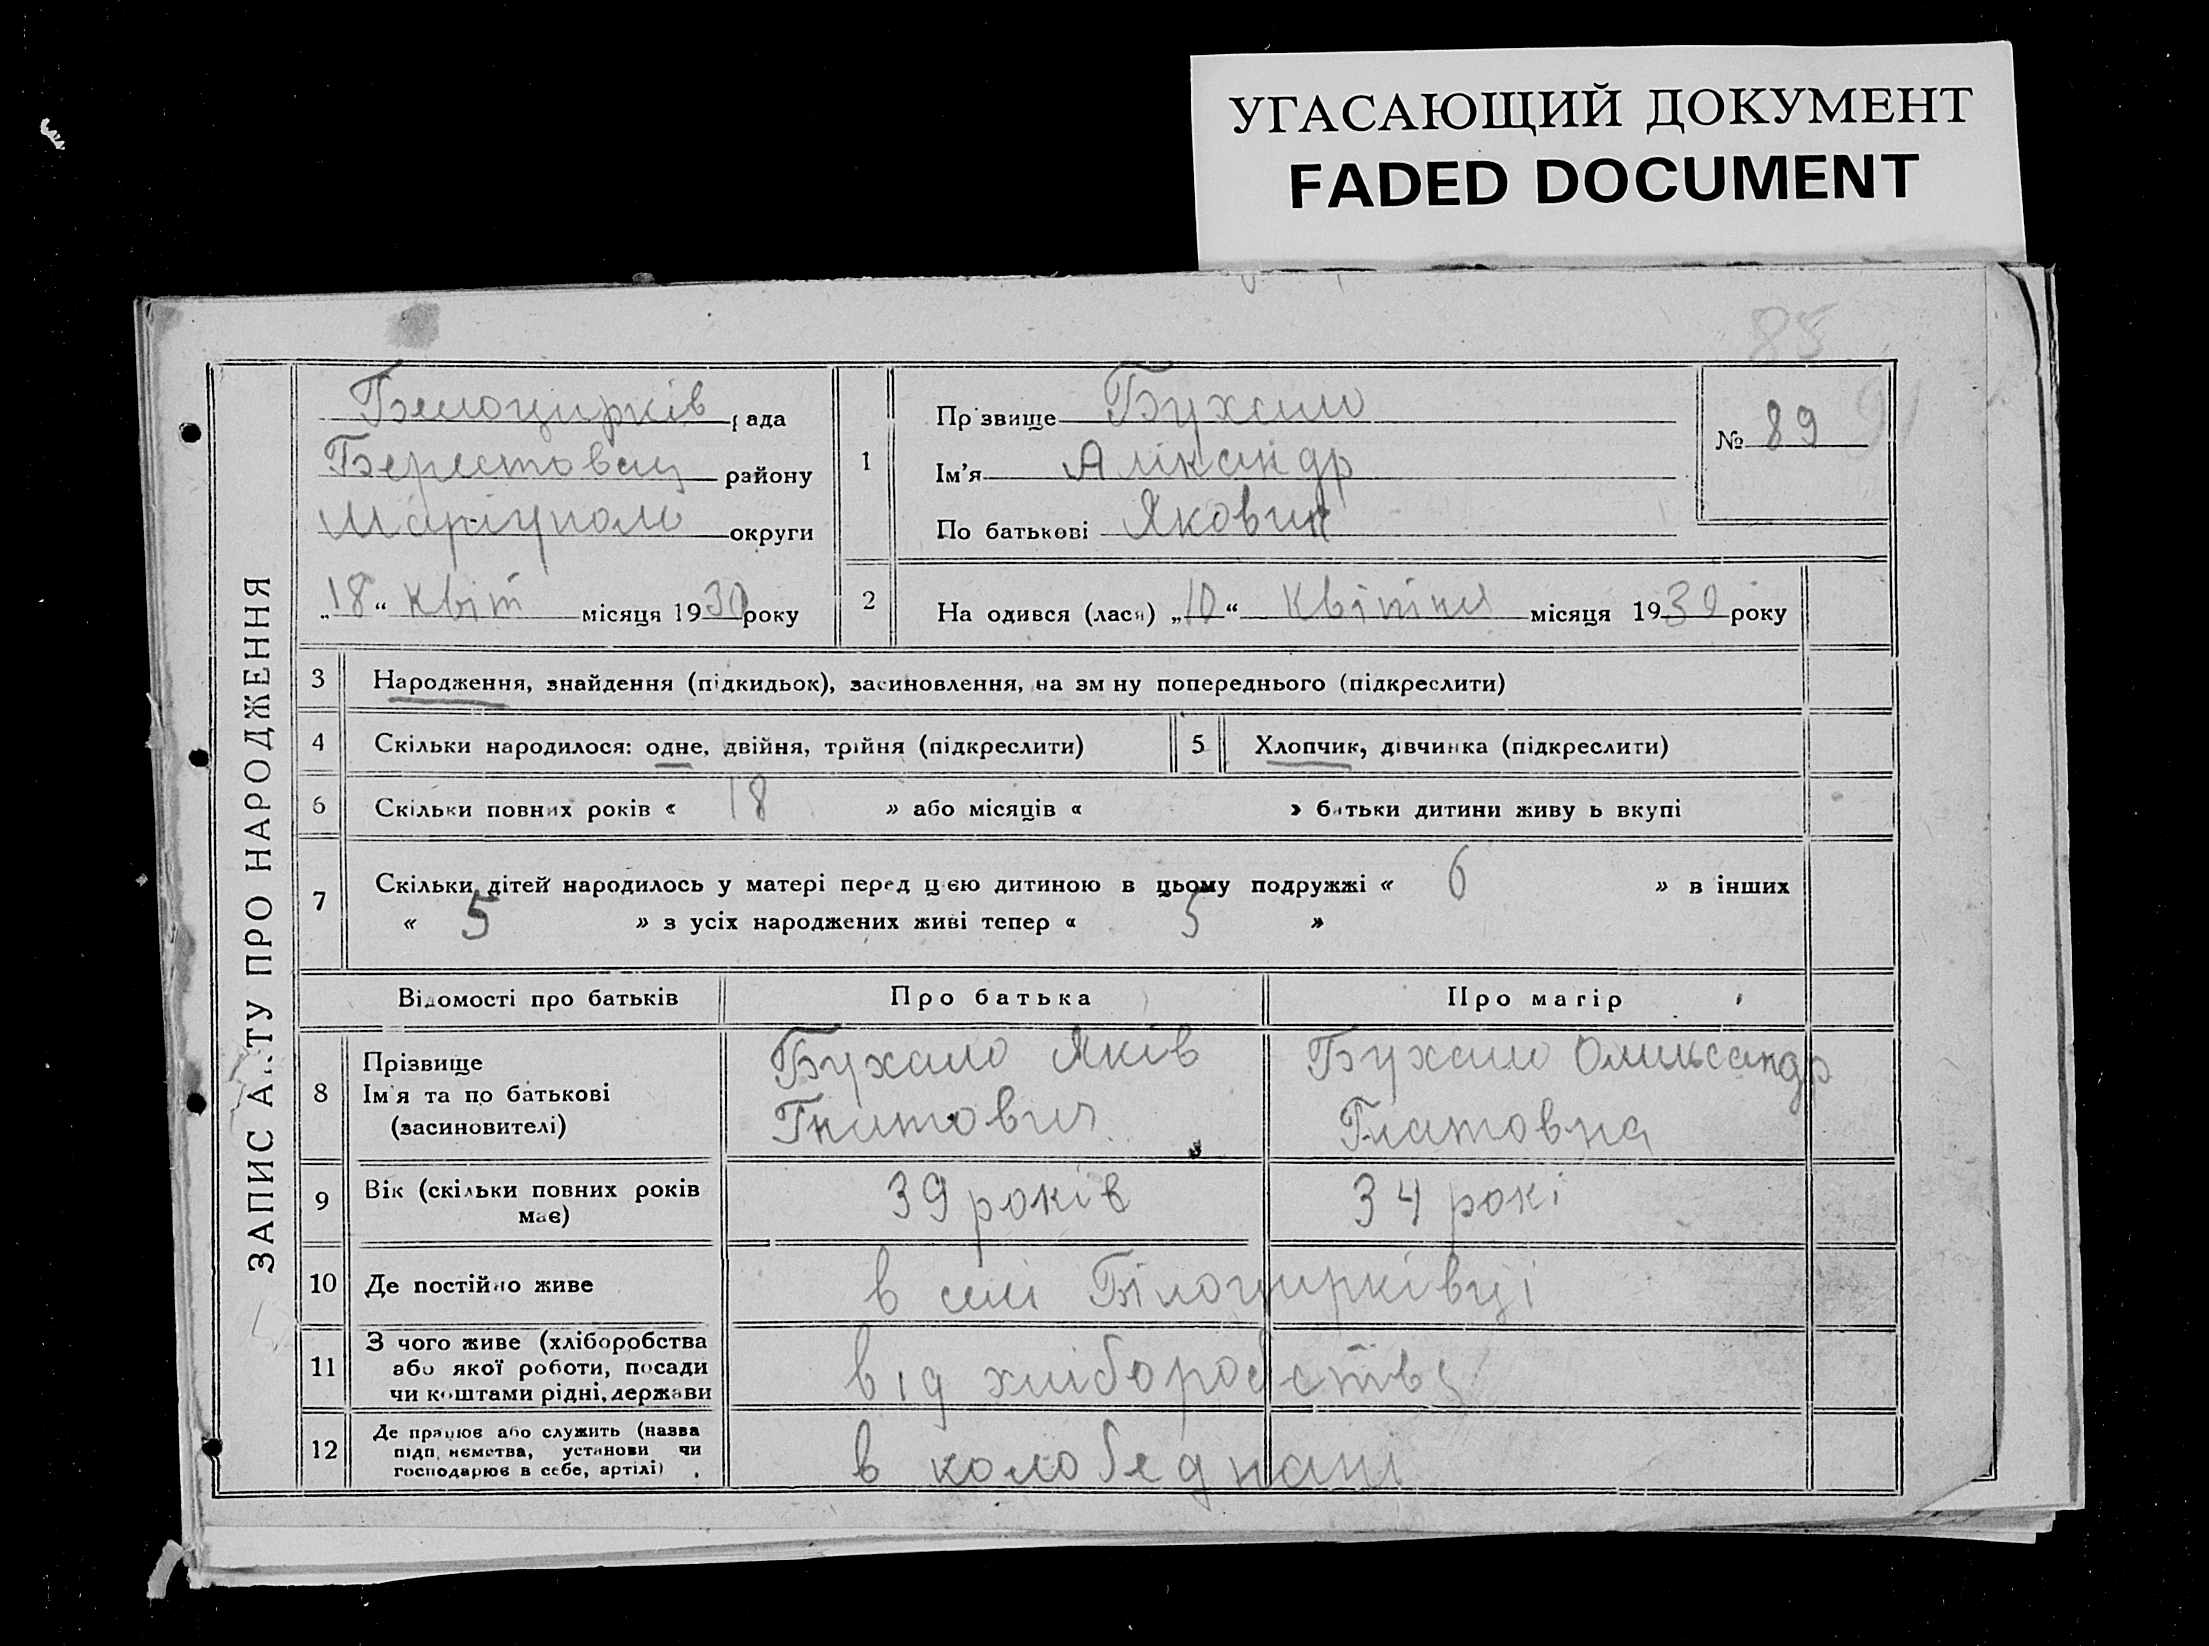 УГАСАЮЩИЙ ДОКУМЕНТ
FADED DOCUMENT
85
91
ЗАПИС А..ТУ ПРО НАРОДЖЕННЯ
Белоцирків рада
Берестовец району
Маріуполь округи
„18“ квіт місяця 1930 року
1
Пр звище Бухало
Ім’я Аліксандр
По батькові Якович
№ 89
2 На одився (лася) „10“ квітня місяця 1930 року
3 Народження, знайдення (підкидьок), засиновлення, на зм ну попереднього (підкреслити)
4 Скільки народилося: одне, двійня, трійня (підкреслити)
5 Хлопчик, дівчинка (підкреслити)
6 Скільки повних років « 18 » або місяців « » батьки дитини живу ь вкупі
7 Скільки дітей народилось у матері перед цією дитиною в цьому подружжі « 6 » в інших
« 5 » з усіх народжених живі тепер « 5 »
Відомості про батьків
Про батька
Про матір
8 Прізвище
Ім'я та по батькові
(засиновителі)
Бухало Яків
Гнатович
Бухало Олександр
Гнатовна
9 Вік (скільки повних років
має)
39 років
34 рокі
10 Де постійно живе
в селі Білоцирківці
11 З чого живе (хліборобства
або якої роботи, посади
чи коштами рідні, держави
від хліборобства
12 Де працює або служить (назва
підп, иємства, установи чи
господарює в себе, артілі)
в колобеднані